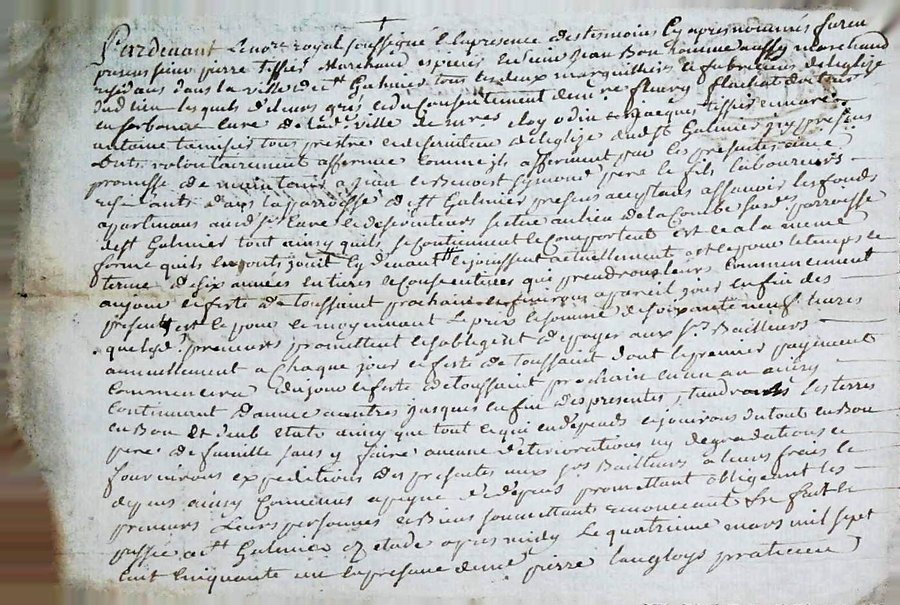 Pardevant le not.re royal soussigné & en presence des tesmoins cy apres nommés furent
presens sieur pierre tissier Marchand espicier et sieur Jean Bonhomme aussy marchand
residans dans la ville de st Galmier tous les deux marguilliers et fabriciens de l'eglise
dud lieu lesquels de leurs grés et du consentement de m.re fleury flachat docteur
en sorbonne curé de lad. ville de m.res eloy odin et jacques tissier et mare
antoine tous prestre et desserviteur de l'eglise dud st Galmier icy presens
ont volontairement affermé comme ils afferment par les presentes avec
promesse de maintenir a jean et Benoist symond pere et fils laboureurs
residants dans la parroisse de st Galmier presens acceptans assavoir les fonds
apartenans aud sr curé et desserviteurs situé au lieu de la Combe sur d. parroisse
de st Galmier tout ainsy quils se contiennent et comportent et a la meme
forme quils en ont jouit cy devant et jouissent actuellement et ce pour le temps et
terme de six années entieres et consecutives qui prendront leurs commencement
au jour et feste de toussaint prochain et finiront a pareil jour en fin des
presentes et ce pour et moyennant le prix et somme de soixante neuf livres
que lesd. preneurs promettent et s'obligent de payer aux srs Bailleurs
annuellement a chaque jour et feste de toussaint dont le premier payement
commencera au jour et feste de toussaint prochain en un an ainsy
continuant d'année a autres jusques en fin des presentes, tiendront les terres
en bon et deub etat ainsy que tout ce qui en depend et jouiront du tout en bon
pere de famille sans y faire aucune deteriorations ny degradations et
fourniront expeditions des presentes aux srs Bailleurs a leurs frais et
depens ainsy convenus a peyne de depens promettant obligeant les
preneurs leurs personnes et Biens soumettant renonceant &c fait et
passé a st Galmier etude apres midy le quatrieme mars mil sept
cent cinquante un en presence de me pierre langloys praticien